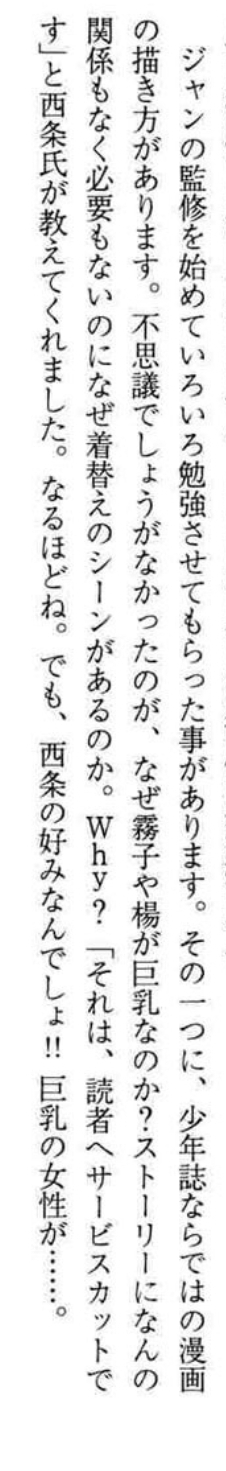 ジャンの監修を始めていろいろ勉強させてもらった事があります。その一つに、少年誌ならではの漫画
の描き方があります。不思議でしょうがなかったのが、なぜ霧子や楊が巨乳なのか？ストーリーになんの
関係もなく必要もないのになぜ着替えのシーンがあるのか。Ｗｈｙ？「それは、読者へサービスカットで
す」と西条氏が教えてくれました。なるほどね。でも、西条の好みなんでしょ!! 巨乳の女性が……。